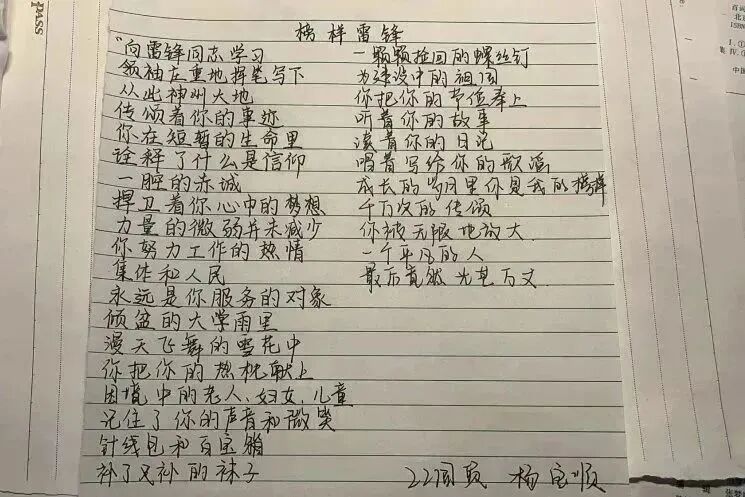 榜样雷锋
"向雷锋同志学习
领袖庄重地挥笔写下
从此神州大地
传颂着你的事迹
你在短暂的生命里
诠释了什么是信仰
一腔的赤诚
捍卫着你心中的梦想
力量的微弱并未减少
你努力工作的热情
集体和人民
永远是你服务的对象
倾盆的大学雨里
漫天飞舞的雪花中
你把你的热忱献上
困境中的老人、妇女、儿童
记住了你的声音和微笑
针线包和百宝箱
补了又补的袜子
一颗颗捡回的螺丝钉
为建设中的祖国
你把你的价值奉上
听着你的故事
读着你的日记
唱着写给你的歌谣
成长的岁月里你是我的榜样
千万次的传颂
你被无限地放大
一个平凡的人
最后竟然光芒万丈
杨宝顺
pass